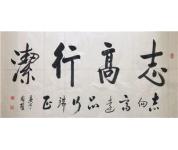 志高行潔
志向高遠品行端正